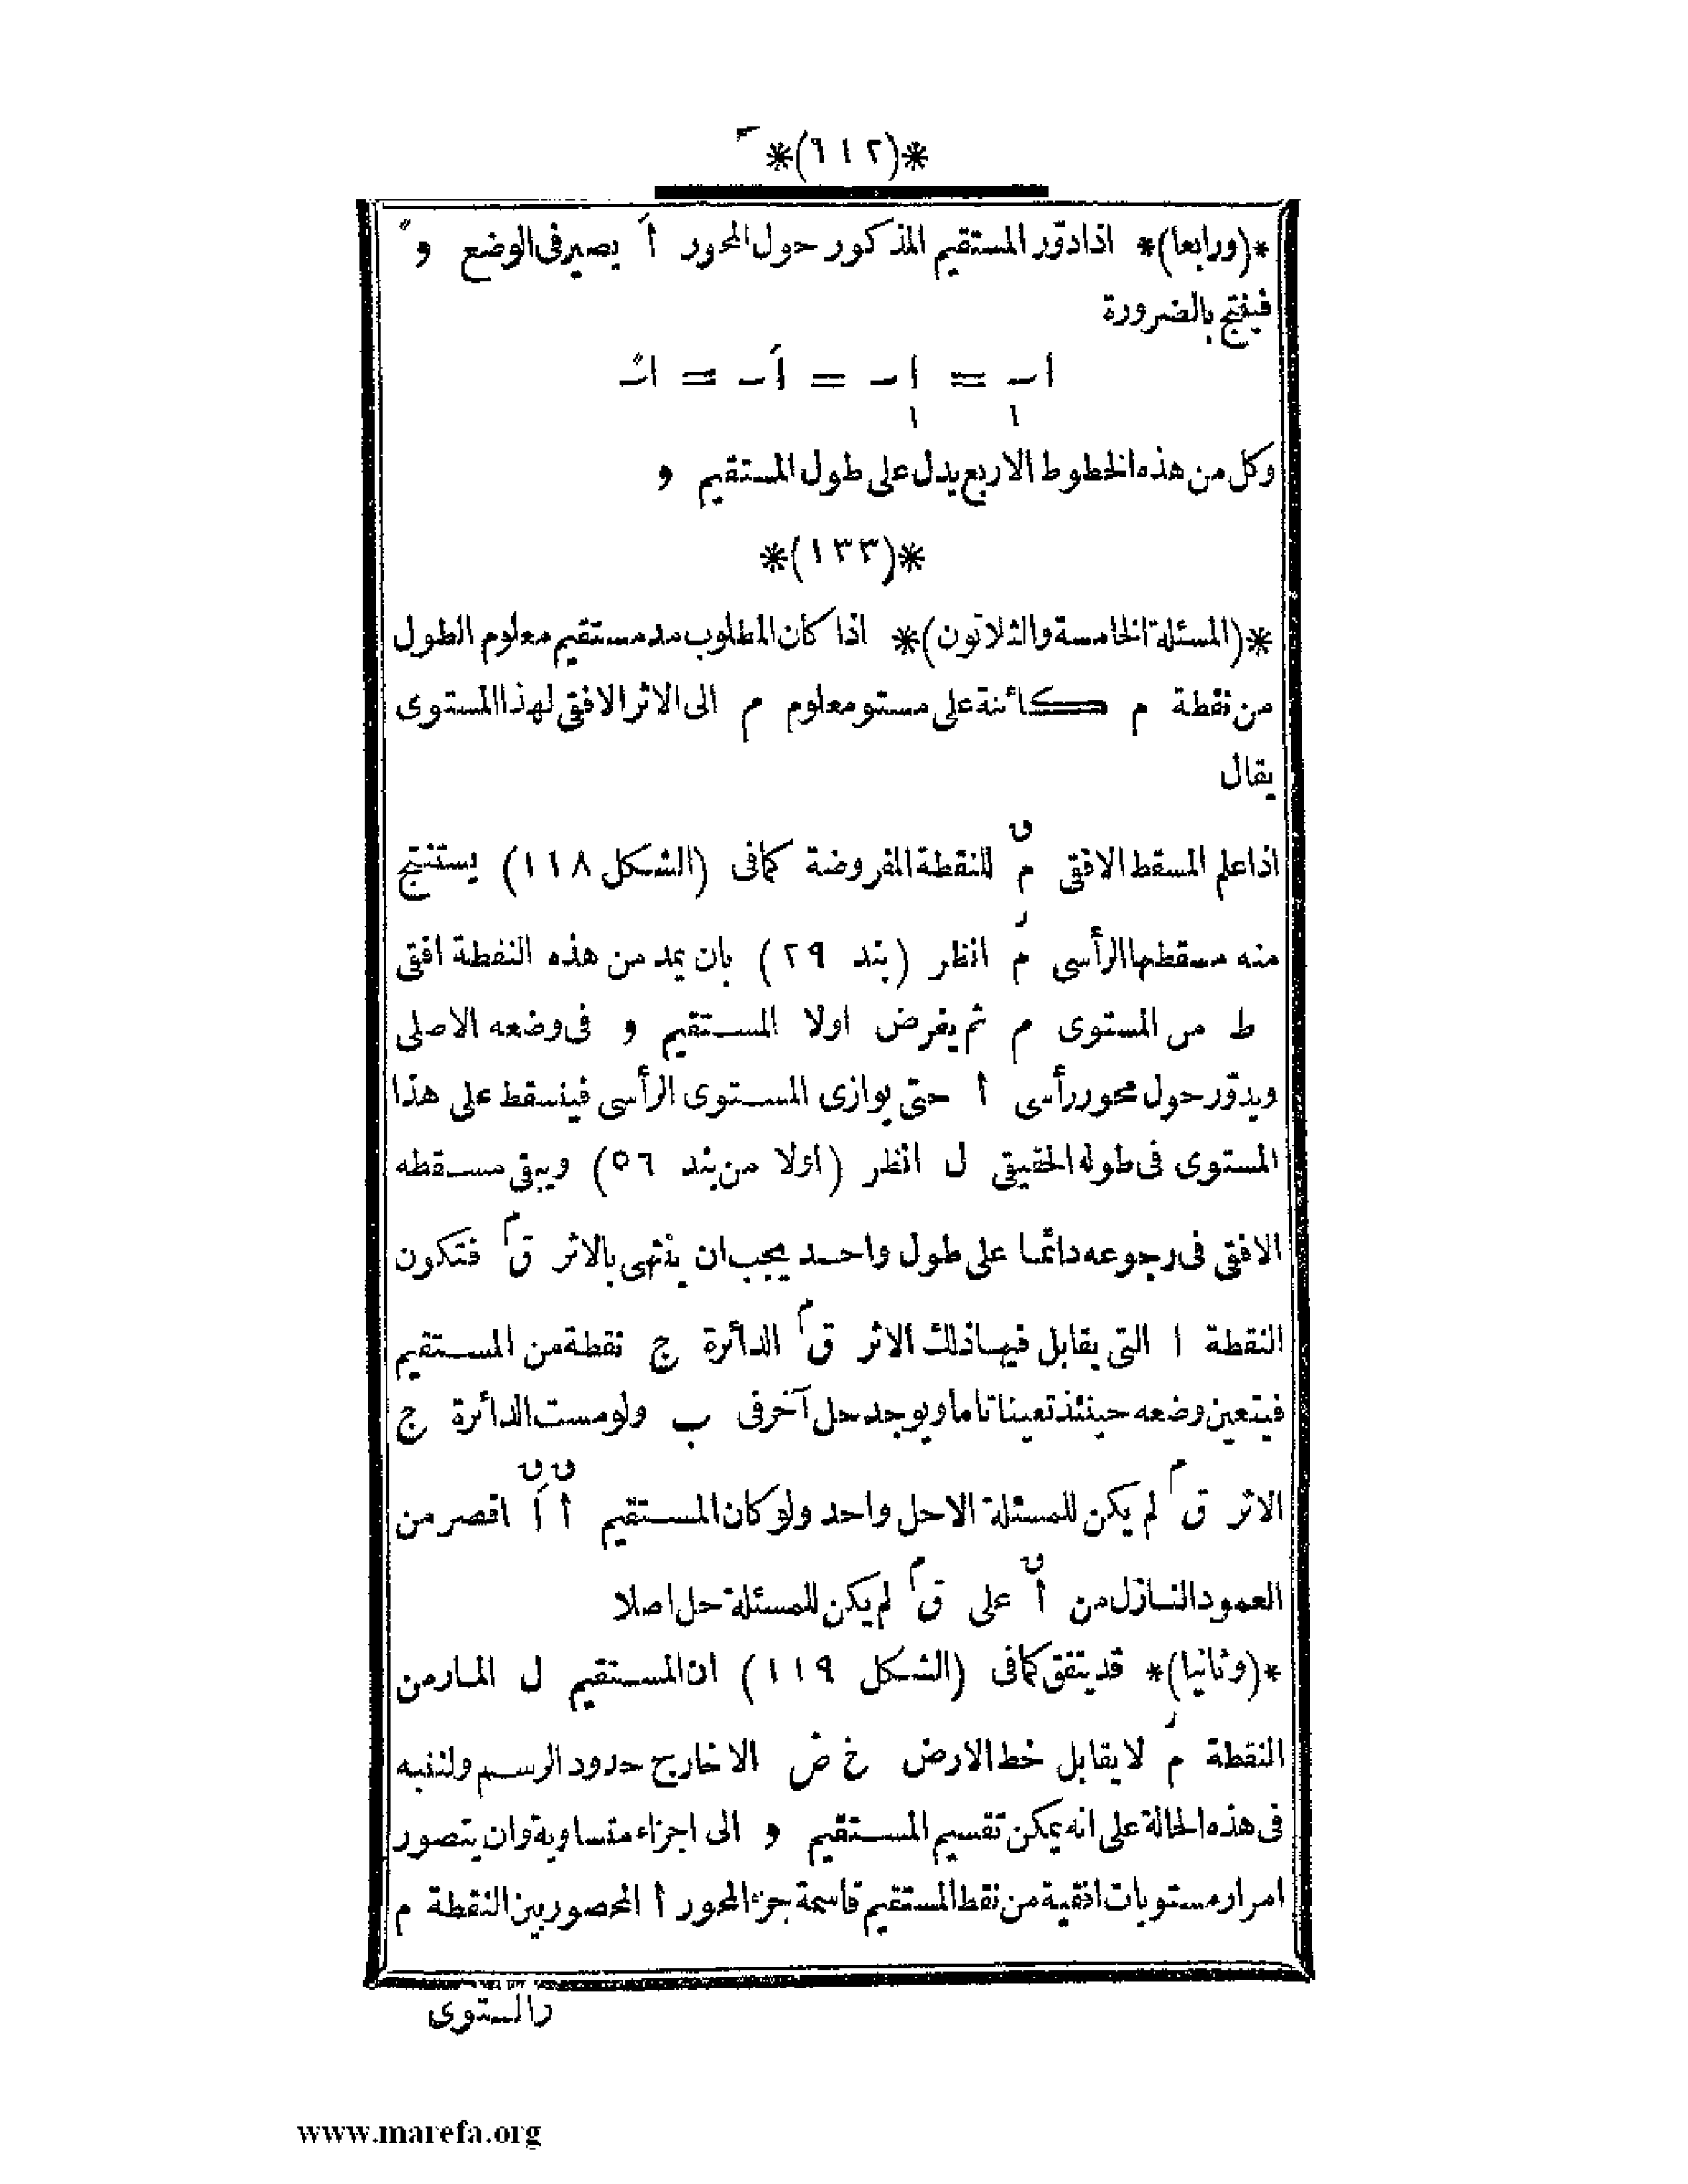 *(٦١٢)*
*(ورابعا)* اذا دوّر المستقيم المذكور حول المحور اَ يصير فى الوضع و ً
فينتج بالضرورة
اب = اب = اَب = اب
١ ١
وكل من هذه الخطوط الاربع يدل على طول المستقيم و
*(١٣٣)*
*(المسئلة الخامسة والثلاثون)* اذا كان المطلوب مد مستقيم معلوم الطول
من نقطة م كائنة على مستو معلوم م الى الاثر الافقى لهذا المستوى
يقال
اذا علم المسقط الافقى م ق للنقطة المفروضة كما فى (الشكل ١١٨) يستنتج
منه مسقطها الرأسى م ر انظر (بند ٢٩) بان يمد من هذه النقطة افقى
ط من المستوى م ثم يفرض اولا المستقيم و فى وضعه الاصلى
ويدوّر حول محور رأسى أ حتى يوازى المستوى الرأسى فينسقط على هذا
المستوى فى طوله الحقيقى ل انظر (اولا من بند ٥٦) ويبقى مسقطه
الافقى فى رجوعه دائما على طول واحد يجب ان ينتهى بالاثر ق م فتكون
النقطة ا التى يقابل فيها ذلك الاثر ق م الدائرة ج نقطة من المستقيم
فيتعين وضعه حينئذ تعينا تاما ويوجد حل آخر فى ب ولو مست الدائرة ج
الاثر ق م لم يكن للمسئلة الا حل واحد ولو كان المستقيم أ ق اَ ق اقصر من
العمود النازل من أ ق على ق م لم يكن للمسئلة حل اصلا
*(وثانيا)* قد يتفق كما فى (الشكل ١١٩) ان المستقيم ل المار من
النقطة م ر لا يقابل خط الارض خ ض الا خارج حدود الرسم ولننبه
فى هذه الحالة على انه يمكن تقسيم المستقيم و الى اجزاء متساوية وان يتصور
امرار مستويات افقية من نقط المستقيم قاسمة جزء المحور أ المحصور بين النقطة م
والمستوى
www.marefa.org